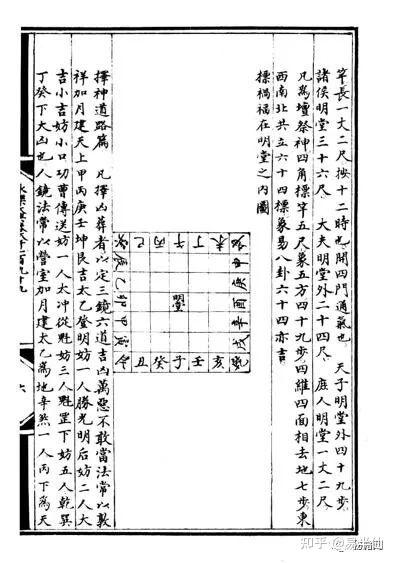 竿長一丈二尺按十二時也開四門通氣也　天子明堂外四十九步
諸侯明堂三十六尺　大夫明堂外二十四尺　庭人明堂一丈二尺
凡為壇祭神四角標竿五尺象五方四十九步四維四面相去地七步東
西南北共立六十四標象易八卦六十四亦吉
標禍福在明堂之內圖
巳丙午丁未
申庚酉辛戌
辰乙卯甲寅
丑癸子壬亥乾
擇神道路篇　凡擇凶葬者以定三鏡六道吉凶萬惡不敢當法常以敦
祥加月建天上甲丙庚壬坤艮吉太乙登明妨一人勝光明后妨二人大
吉小吉妨小口功曹傳送妨一人太冲從魁妨三人魁罡下妨五人乾巽
丁癸下大凶也人鏡法常以營室加月建太乙為地辛然一人丙下為天
六
知乎